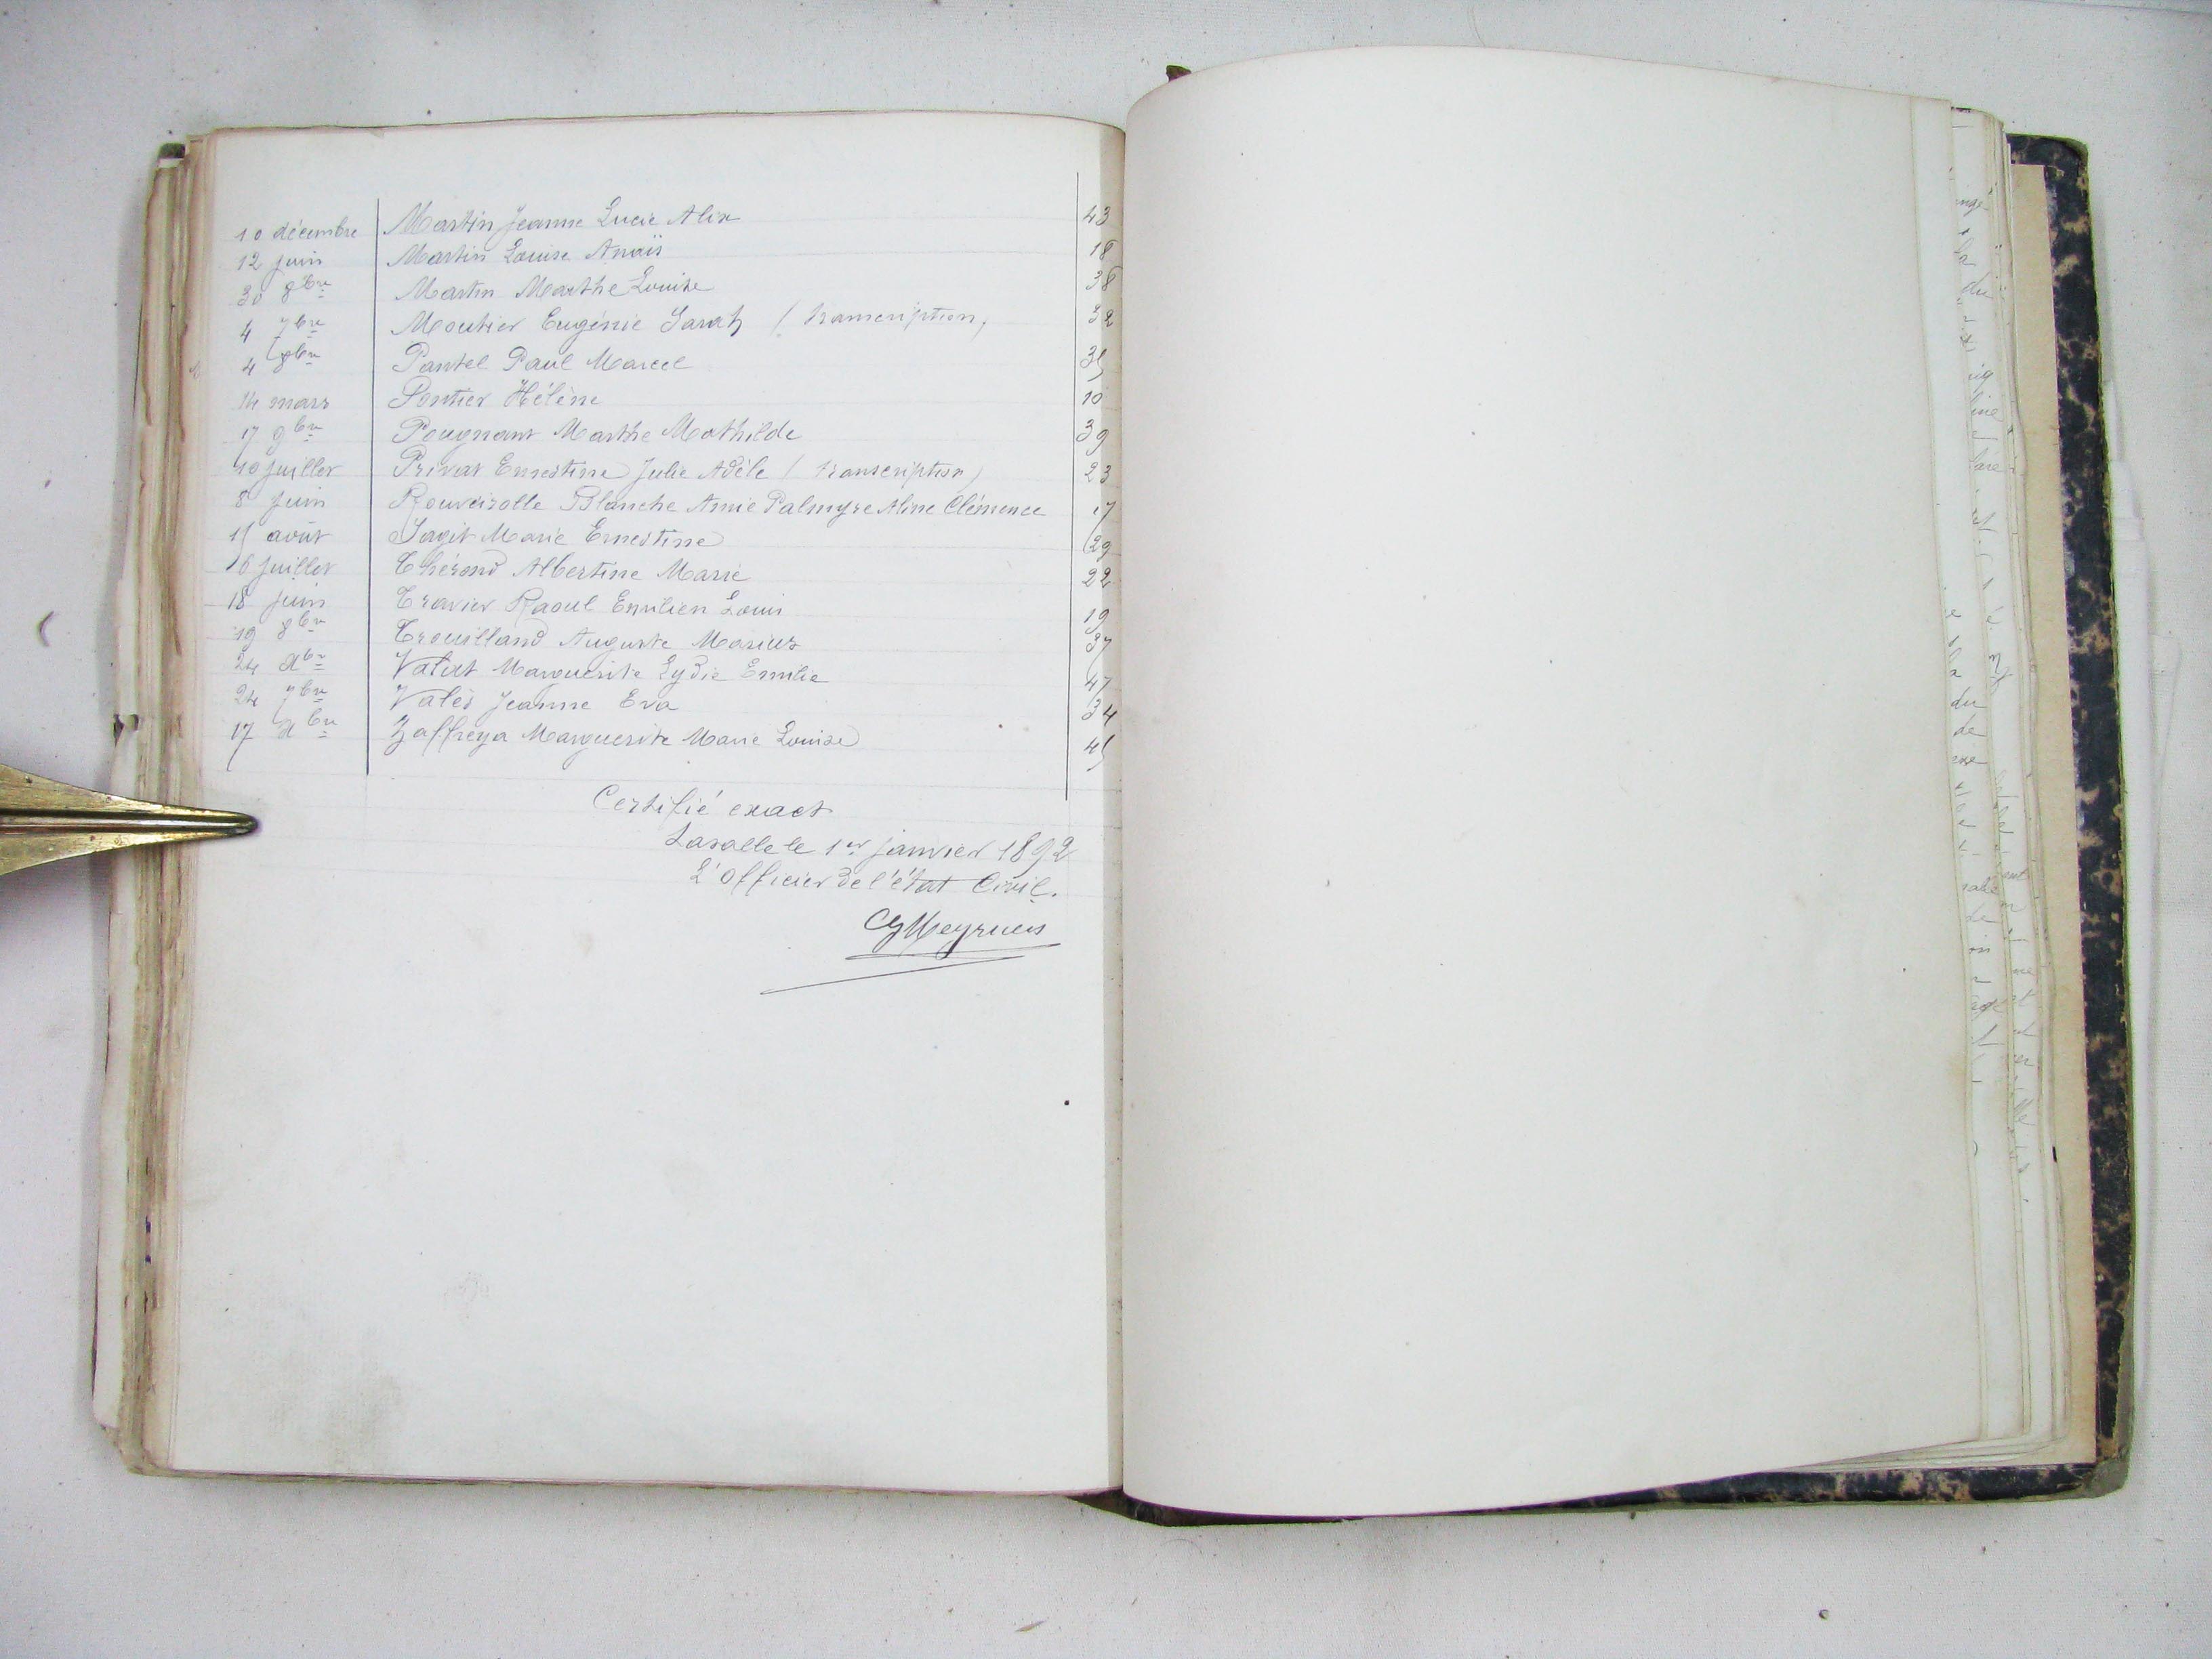 10 décembre Martin Jeanne Lucie Alix 43
12 juin Martin Louise Anaïs 18
30 8bre Martin Marthe Louise 38
4 7bre Moutier Eugénie Sarah (transcription) 32
4 8bre Pantel Paul Marcel 35
14 mars Pontier Hélène 10
17 9bre Pougnant Marthe Mathilde 39
10 juillet Privat Ernestine Julie Adèle (transcription) 23
8 juin Rouveirolle Blanche Annie Palmyre Aline Clémence 17
15 août Sagit Marie Ernestine 29
16 juillet Thérond Albertine Marie 22
18 juin Travier Raoul Emilien Louis 19
19 8bre Trouilland Auguste Marius 37
24 Xbre Valat Marguerite Lydie Emilie 47
24 7bre Valès Jeanne Eva 34
17 Xbre Zaffreya Marguerite Marie Louise 45
Certifié exact
Lasalle le 1er janvier 1892
L'officier de l'état Civil.